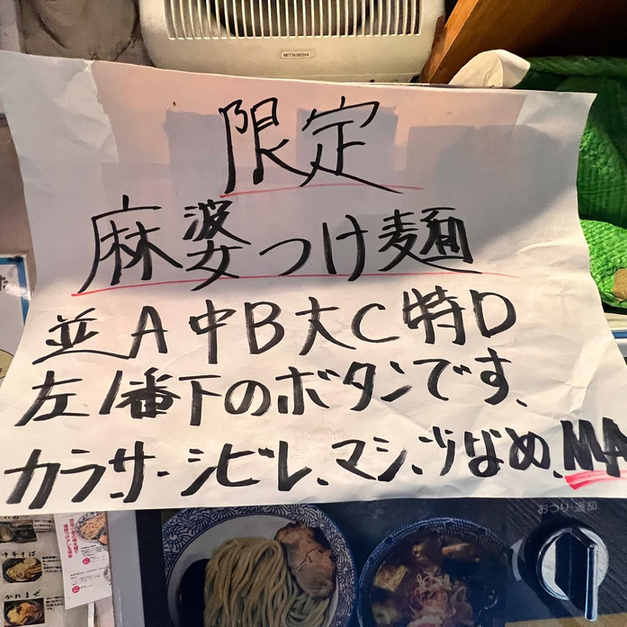 MITSUBISHI
限定
麻婆つけ麺
並A中B大C特D
左1番下のボタンです、
カラ、サ・シビレ、マシ、少なめ、MA
おつり・返却